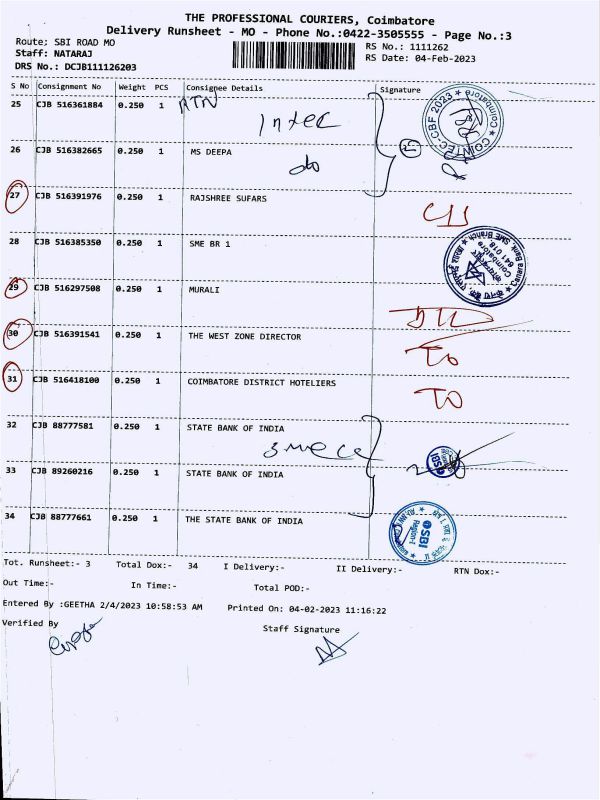 THE PROFESSIONAL COURIERS, Coimbatore
Delivery Runsheet - MO - Phone No.:0422-3505555 - Page No.:3
Route; SBI ROAD MO
RS No.: 1111262
Staff: NATARAJ
RS Date: 04-Feb-2023
DRS No.: DCJB111126203
S No Consignment No Weight PCS Consignee Details Signature
25 CJB 516361884 0.250 1 RTN
Intec
COINTEC-CBF 2023 * Coimbatore *
26 CJB 516382665 0.250 1 MS DEEPA
do
27 CJB 516391976 1 0.250 RAJSHREE SUFARS
28 CJB 516385350 0.250 1 SME BR 1
Canara Bank, SME Branch
Coimbatore
641 018
29 CJB 516297508 0.250 1 MURALI
30 CJB 516391541 0.250 1 THE WEST ZONE DIRECTOR
TO
31 CJB 516418100 0.250 1 COIMBATORE DISTRICT HOTELIERS
TO
32 CJB 88777581 0.250 1 STATE BANK OF INDIA
33 CJB 89260216 0.250 1 STATE BANK OF INDIA
SBI
34 CJB 88777661 0.250 1 THE STATE BANK OF INDIA
SBI
Region-I
Tot. Runsheet:- 3 Total Dox:- 34 I Delivery:- II Delivery:- RTN Dox:-
Out Time:- In Time:- Total POD:-
Entered By :GEETHA 2/4/2023 10:58:53 AM Printed On: 04-02-2023 11:16:22
Verified By Staff Signature